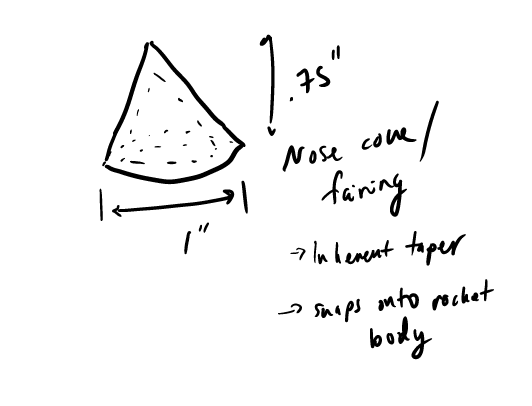 .75"
Nose cone/
fairing
1"
→ Inherent taper
→ snaps onto rocket
body